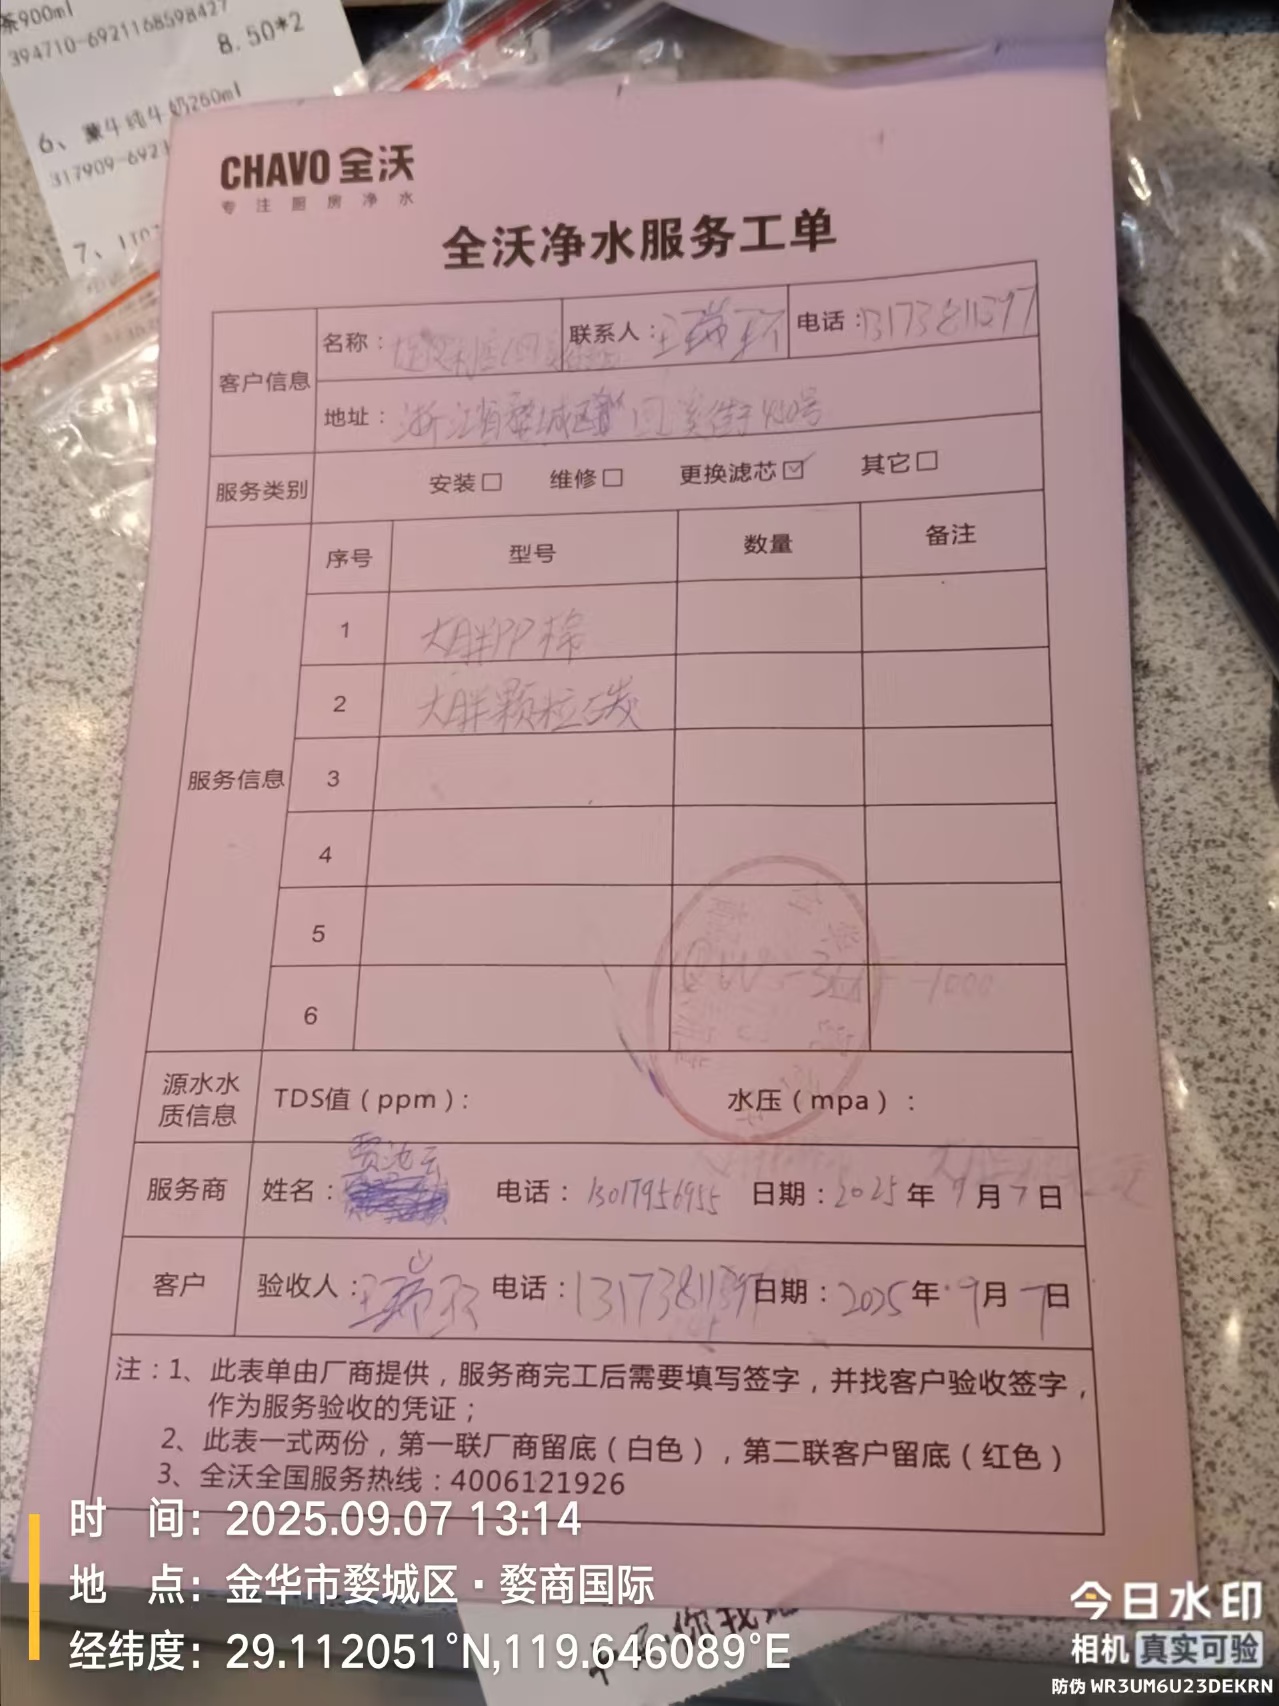 茶900ml
394710-6921168598427
8.50*2
6、蒙牛纯牛奶250ml
317909-6921
7、
CHAVO 全沃
专注厨房净水
全沃净水服务工单
客户信息
名称：
联系人：王瑞环
电话：13173811397
地址：浙江省婺城区 回溪街 号
服务类别 安装□ 维修□ 更换滤芯☑ 其它□
服务信息
序号 型号 数量 备注
1 大胖PP棉
2 大胖颗粒碳
3
4
5
6
-1000
源水水质信息
TDS值（ppm）：
水压（mpa）：
服务商 姓名：贾池云 电话：13017956955 日期：2025年9月7日
客户 验收人：王瑞环 电话：13173811397 日期：2025年9月7日
注：1、此表单由厂商提供，服务商完工后需要填写签字，并找客户验收签字，
作为服务验收的凭证；
2、此表一式两份，第一联厂商留底（白色），第二联客户留底（红色）
3、全沃全国服务热线：4006121926
时 间：2025.09.07 13:14
地 点：金华市婺城区·婺商国际
经纬度：29.112051°N,119.646089°E
今日水印
相机 真实可验
防伪 WR3UM6U23DEKRN